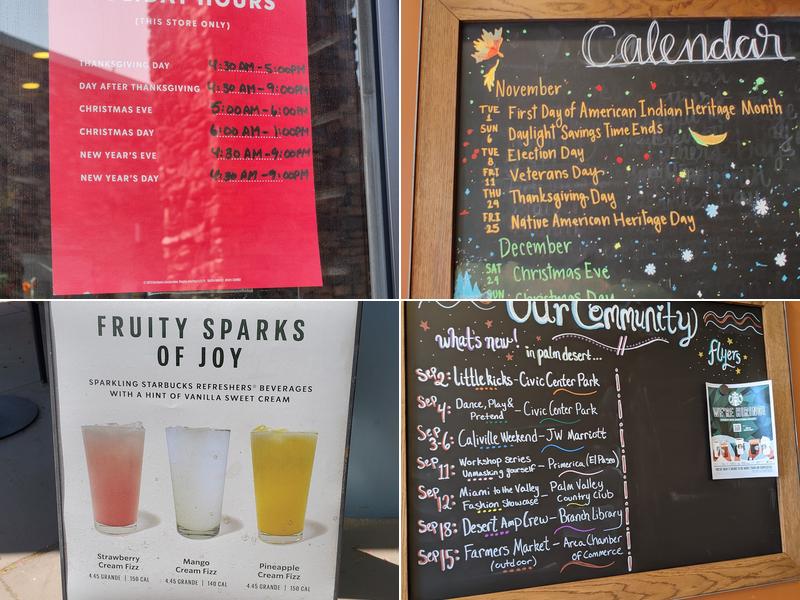 HOURS
(THIS STORE ONLY)
THANKSGIVING DAY 4:30 AM - 5:00PM
DAY AFTER THANKSGIVING 4:30 AM - 9:00PM
CHRISTMAS EVE 5:00AM - 6:00PM
CHRISTMAS DAY 6:00 AM - 1:00PM
NEW YEAR'S EVE 4:30 AM - 9:00PM
NEW YEAR'S DAY 4:30 AM - 9:00PM
Calendar
November
TUE 1 First Day of American Indian Heritage Month
SUN Daylight Savings Time Ends
TUE 8 Election Day
FRI 11 Veterans Day
THU 24 Thanksgiving Day
FRI 25 Native American Heritage Day
December
SAT 24 Christmas Eve
SUN Christmas Day
FRUITY SPARKS
OF JOY
SPARKLING STARBUCKS REFRESHERS® BEVERAGES
WITH A HINT OF VANILLA SWEET CREAM
Strawberry
Cream Fizz
4.45 GRANDE | 150 CAL
Mango
Cream Fizz
4.45 GRANDE | 140 CAL
Pineapple
Cream Fizz
4.45 GRANDE | 150 CAL
Our Community
what's new!
in palm desert...
Flyers
Sep 2: Little kicks - Civic Center Park
Sep 4: Dance, Play & Pretend - Civic Center Park
Sep 3-6: Caliville Weekend - JW Marriott
Sep 11: Workshop series Unmasking yourself - Primerica (El Paseo)
Sep 12: Miami to the Valley Fashion Showcase - Palm Valley Country Club
Sep 18: Desert Amp Crew - Branch Library
Sep 15: Farmers Market (outdoor) - Area Chamber of Commerce
WE'RE HIRING!